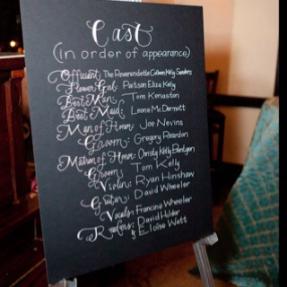 Cast
(In order of appearance)
Officiant: The Reverendette Colleen Kelly Sanders
Flower Girl: Patison Eliza Kelly
Best Man: Tom Konaston
Best Maid: Leone McDermott
Man of Honor: Joe Nevins
Groom: Gregory Reardon
Matron of Honor: Christy Kelly Bentgen
Groom: Tom Kelly
Violin: Ryan Hinshaw
Guitar: David Wheeler
Vocals: Francine Wheeler
Readers: David Hulder
& Eloise Watt